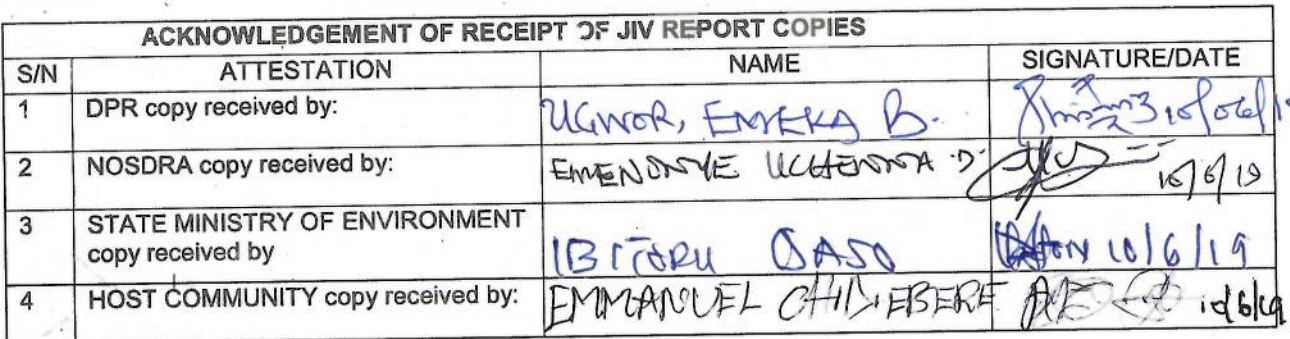 ACKNOWLEDGEMENT OF RECEIPT OF JIV REPORT COPIES
S/N ATTESTATION NAME SIGNATURE/DATE
1 DPR copy received by: UGWOR, EMEKA B. 10/06/1
2 NOSDRA copy received by: EMENONYE UCHENNA D. 10/6/19
3 STATE MINISTRY OF ENVIRONMENT
copy received by IBITORU 10/6/19
4 HOST COMMUNITY copy received by: EMMANUEL CHIDIEBERE 10/6/19